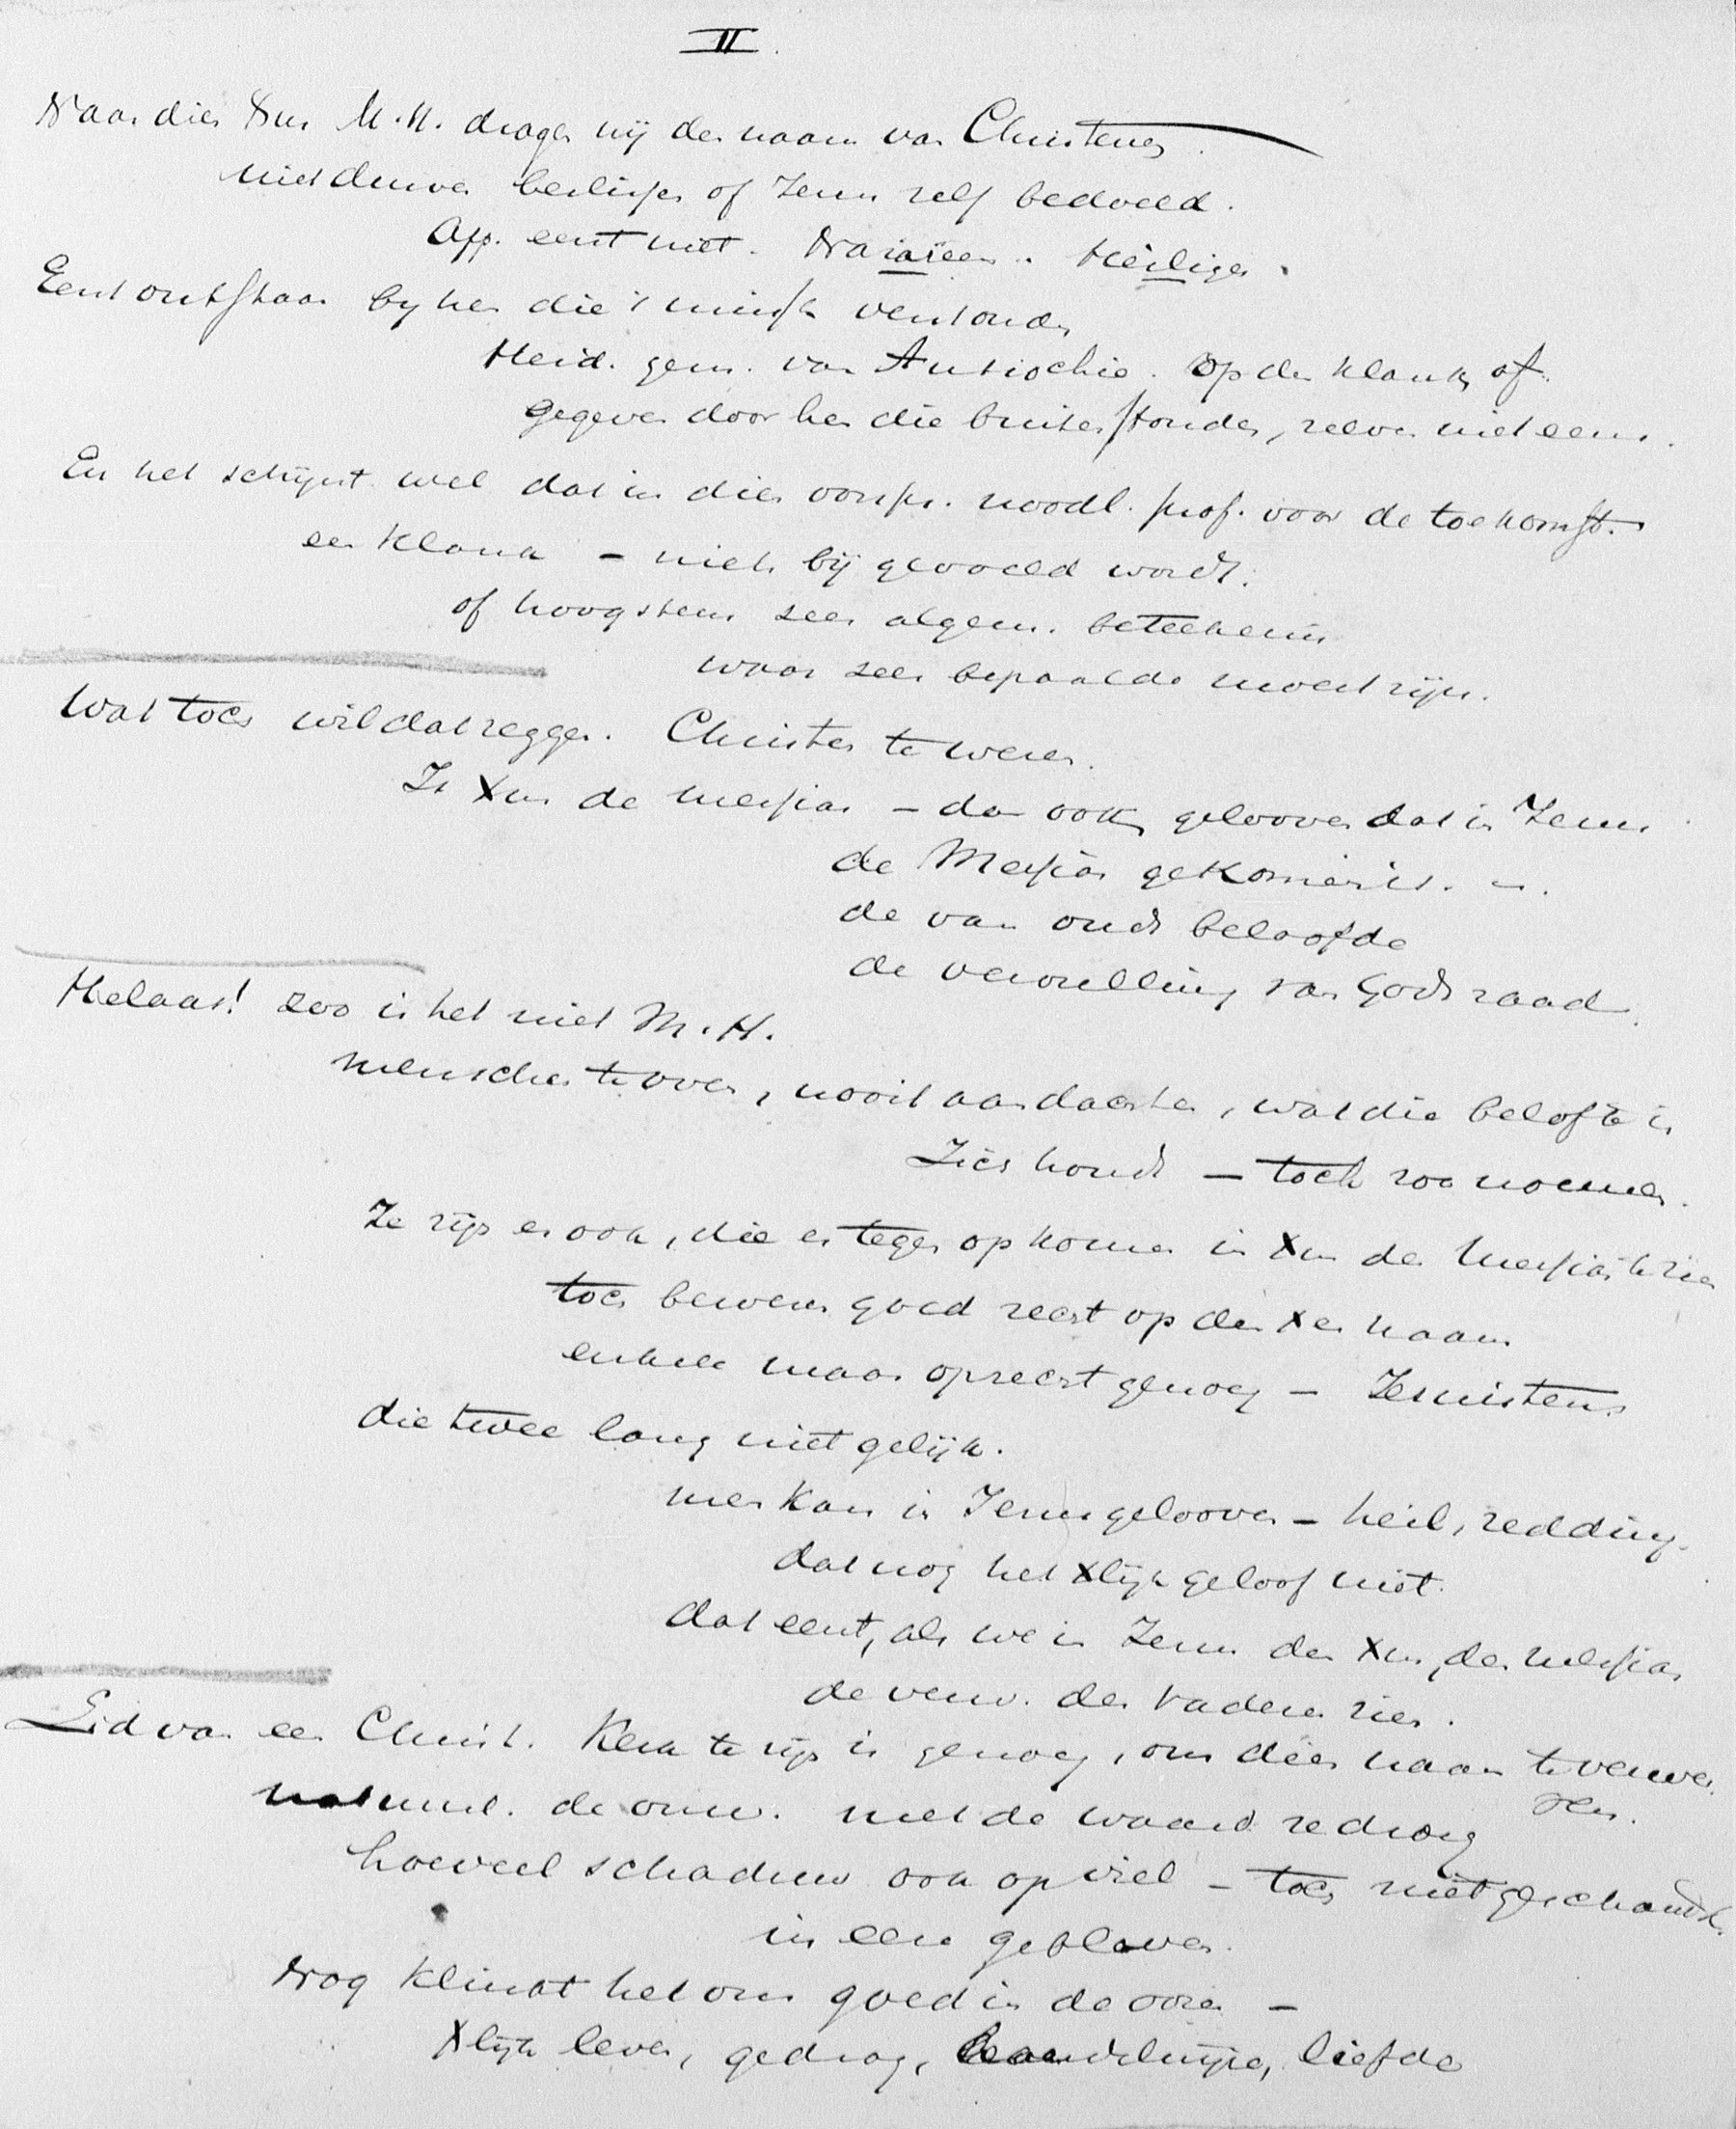 II.
Naar dien Xus M.H. dragen wij den naam van Christenen.
niet door discipelen of Jezus zelf bedoeld.
App. eerst niet. Nazareen. Heiligen.
Eerst ontstaan by hen die 't minst verstonden
Heid. gem. van Antiochie. op den klank af.
gegeven door hen die buiten stonden, zelven niet eens.
En het schijnt wel dat in dien oorspr. noodl. prof. voor de toekomst.
een klank – niets bij gevoeld wordt.
of hoogstens zeer algem. beteekenis
waar zeer bepaalde moest zijn.
Wat toch wil dat zeggen. Christen te wezen.
Is Xus de Messias – dan ook gelooven dat in Jezus
de Messias gekomen is.
de van ouds beloofde
de vervulling van Gods raad.
Helaas! zoo is het niet M.H.
menschen te over, nooit aan dachten, wat die belofte in
Zich houdt – toch zoo noemen.
Ze zijn er ook, die er tegen op komen in Xus den Messias te zien
toch beweren goed recht op den Xen naam
enkele maar oprecht genoeg – Jezuisten.
die twee lang niet gelijk.
men kan in Jezus gelooven – heil, redding.
dat nog het Xlijk geloof niet.
dat eerst, als we in Jezus den Xus, den Messias
de verw. der vaderen zien.
Lid van een Christ. Kerk te zijn is genoeg, om dien naam te verwer
ven.
natuurl. de onw. met de waard. ze droeg
hoeveel schaduw ook op viel – toch niet geschandvl.
in eere gebleven.
Nog klinkt het ons goed in de ooren –
Xlijk leven, gedrag, liefde